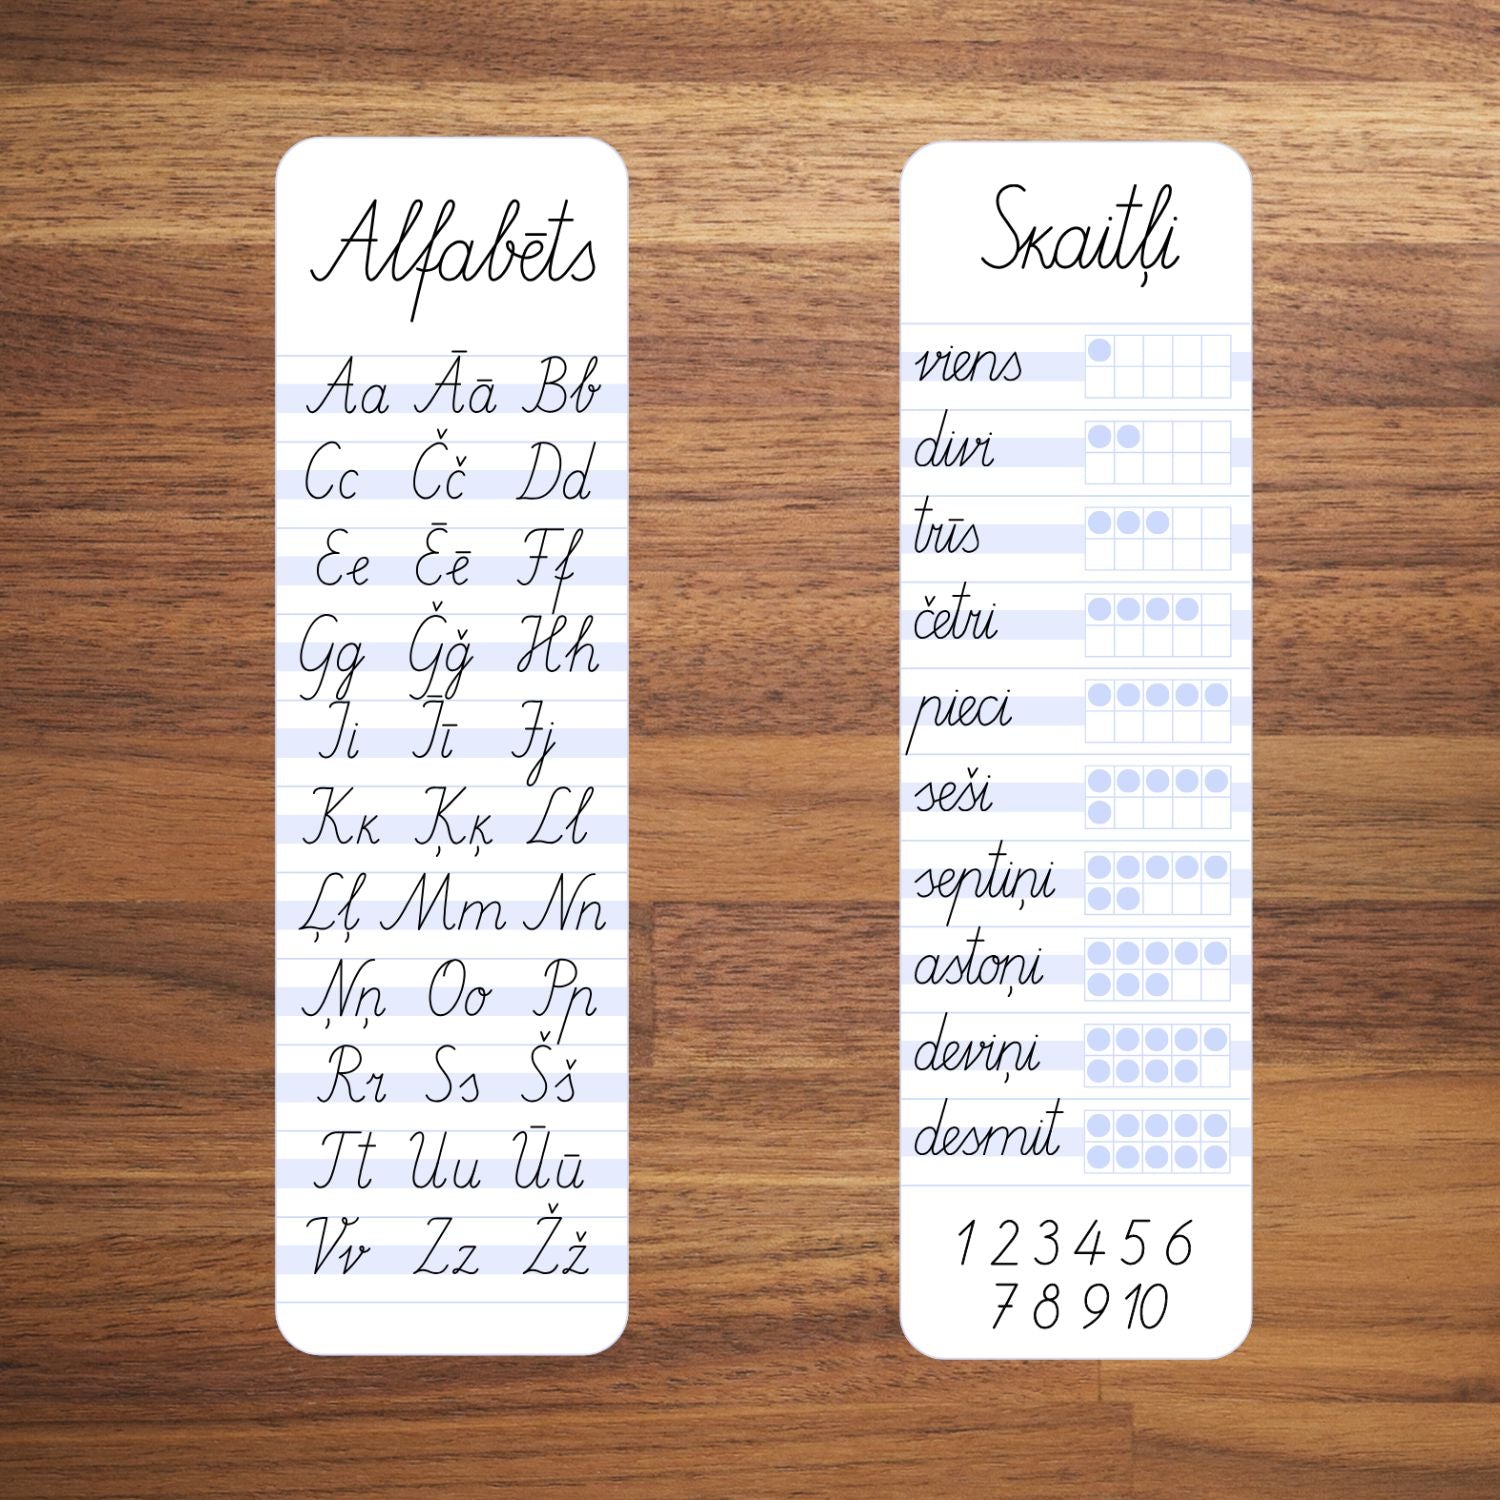 Alfabēts
Aa Āā Bb
Cc Čč Dd
Ee Ēē Ff
Gg Ǧǧ Hh
Ii Īī Jj
Kk Ķķ Ll
Ļļ Mm Nn
Ņņ Oo Pp
Rr Ss Šš
Tt Uu Ūū
Vv Zz Žž
Skaitļi
viens
divi
trīs
četri
pieci
seši
septiņi
astoņi
deviņi
desmit
1 2 3 4 5 6
7 8 9 10